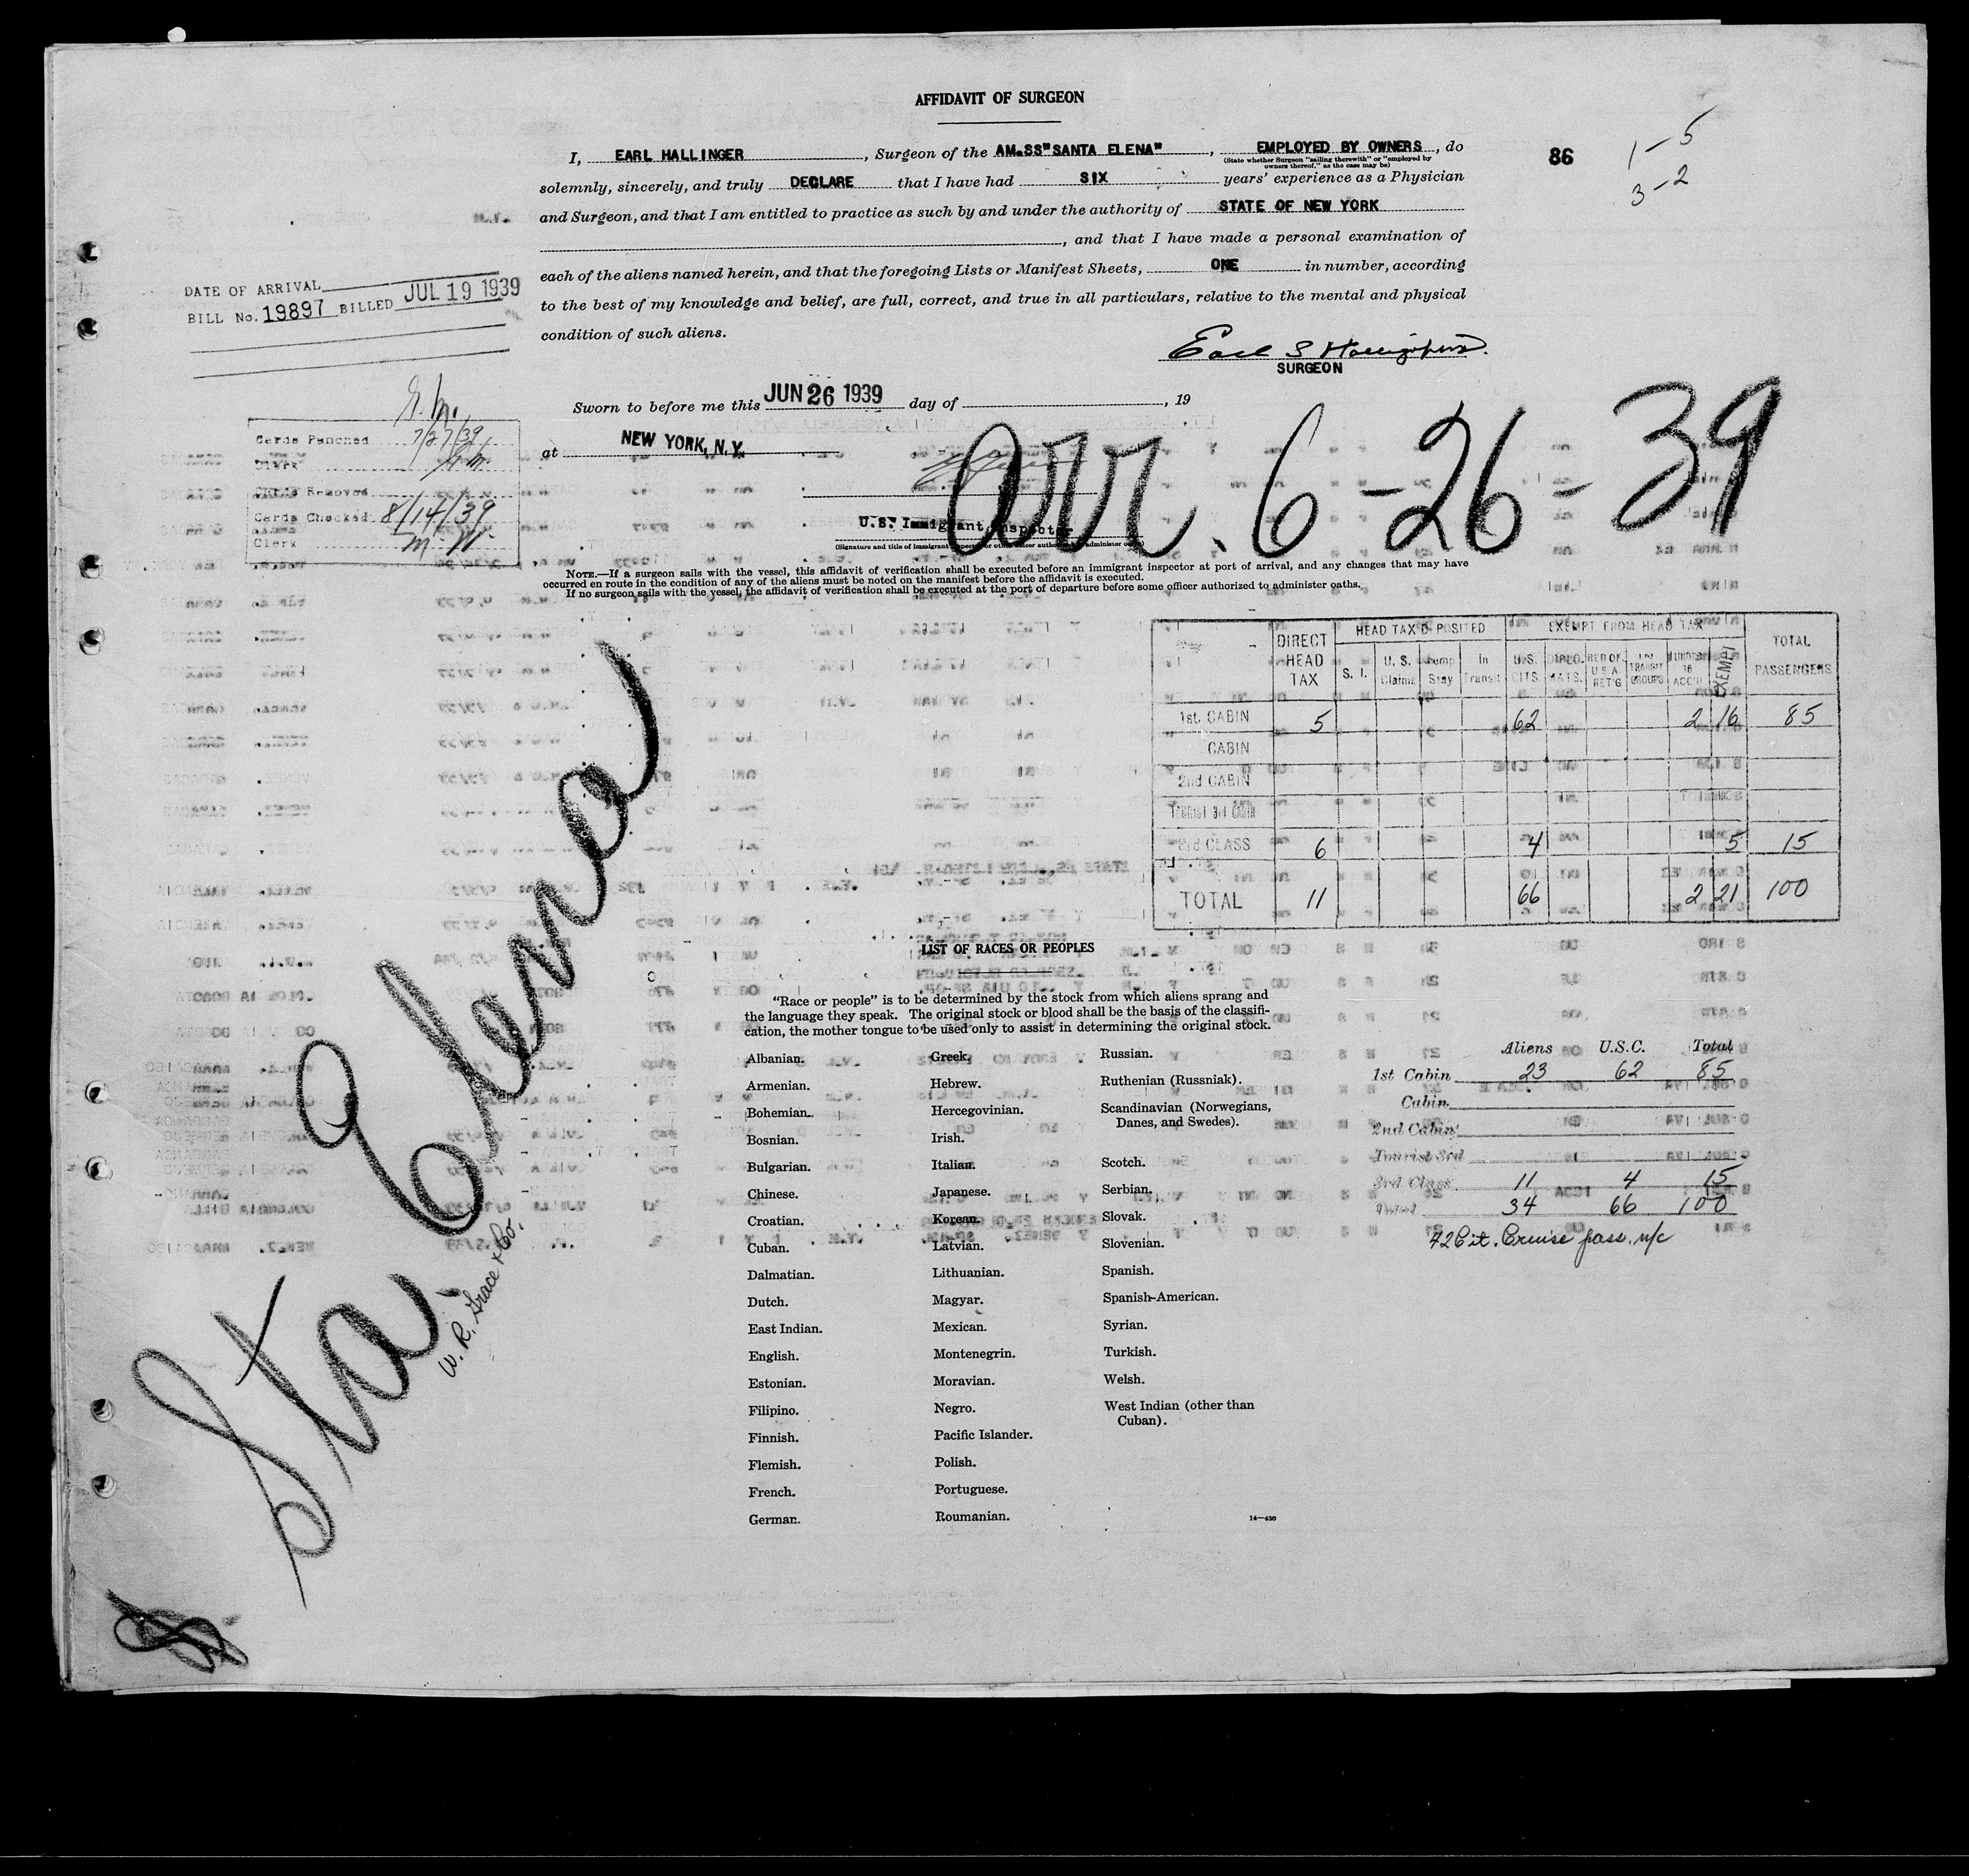 AFFIDAVIT OF SURGEON
I, EARL HALLINGER, Surgeon of the AM.SS"SANTA ELENA", EMPLOYED BY OWNERS, do
(State whether Surgeon "sailing therewith" or "employed by
owners thereof," as the case may be)
86
1-5
3-2
solemnly, sincerely, and truly DECLARE that I have had SIX years' experience as a Physician
and Surgeon, and that I am entitled to practice as such by and under the authority of STATE OF NEW YORK
, and that I have made a personal examination of
each of the aliens named herein, and that the foregoing Lists or Manifest Sheets, ONE in number, according
to the best of my knowledge and belief, are full, correct, and true in all particulars, relative to the mental and physical
condition of such aliens.
DATE OF ARRIVAL
BILL No. 19897 BILLED JUL 19 1939
SURGEON
Sworn to before me this JUN 26 1939 day of , 19
at NEW YORK, N.Y.
Cards Punched 7/27/39
Clerk
Cards Checked 8/14/39
Clerk M. W.
Arr. 6-26-39
U.S. Immigrant Inspector
NOTE.—If a surgeon sails with the vessel, this affidavit of verification shall be executed before an immigrant inspector at port of arrival, and any changes that may have
occurred en route in the condition of any of the aliens must be noted on the manifest before the affidavit is executed.
If no surgeon sails with the vessel, the affidavit of verification shall be executed at the port of departure before some officer authorized to administer oaths.
DIRECT HEAD TAX
HEAD TAX D POSITED
EXEMPT FROM HEAD TAX
TOTAL PASSENGERS
S. I. U. S. Claims Temp Stay In Transit U.S. CITS. DIPLO-MATS. RES OF U.S.A. RET'G IN TRANSIT GROUPS UNDER 16 ACC'D EXEMPT
1st. CABIN 5 62 2 16 85
CABIN
2nd CABIN
TOURIST 3rd CABIN
3rd CLASS 6 4 5 15
TOTAL 11 66 2 21 100
Sta. Elena
W. R. Grace & Co.
LIST OF RACES OR PEOPLES
"Race or people" is to be determined by the stock from which aliens sprang and
the language they speak. The original stock or blood shall be the basis of the classifi-
cation, the mother tongue to be used only to assist in determining the original stock.
Albanian.
Armenian.
Bohemian.
Bosnian.
Bulgarian.
Chinese.
Croatian.
Cuban.
Dalmatian.
Dutch.
East Indian.
English.
Estonian.
Filipino.
Finnish.
Flemish.
French.
German.
Greek.
Hebrew.
Hercegovinian.
Irish.
Italian.
Japanese.
Korean.
Latvian.
Lithuanian.
Magyar.
Mexican.
Montenegrin.
Moravian.
Negro.
Pacific Islander.
Polish.
Portuguese.
Roumanian.
Russian.
Ruthenian (Russniak).
Scandinavian (Norwegians,
Danes, and Swedes).
Scotch.
Serbian.
Slovak.
Slovenian.
Spanish.
Spanish-American.
Syrian.
Turkish.
Welsh.
West Indian (other than
Cuban).
14-430
Aliens U.S.C. Total
1st Cabin 23 62 85
Cabin
2nd Cabin
Tourist 3rd
3rd Class 11 4 15
Total 34 66 100
42 Cit. Cruise pass. n/c